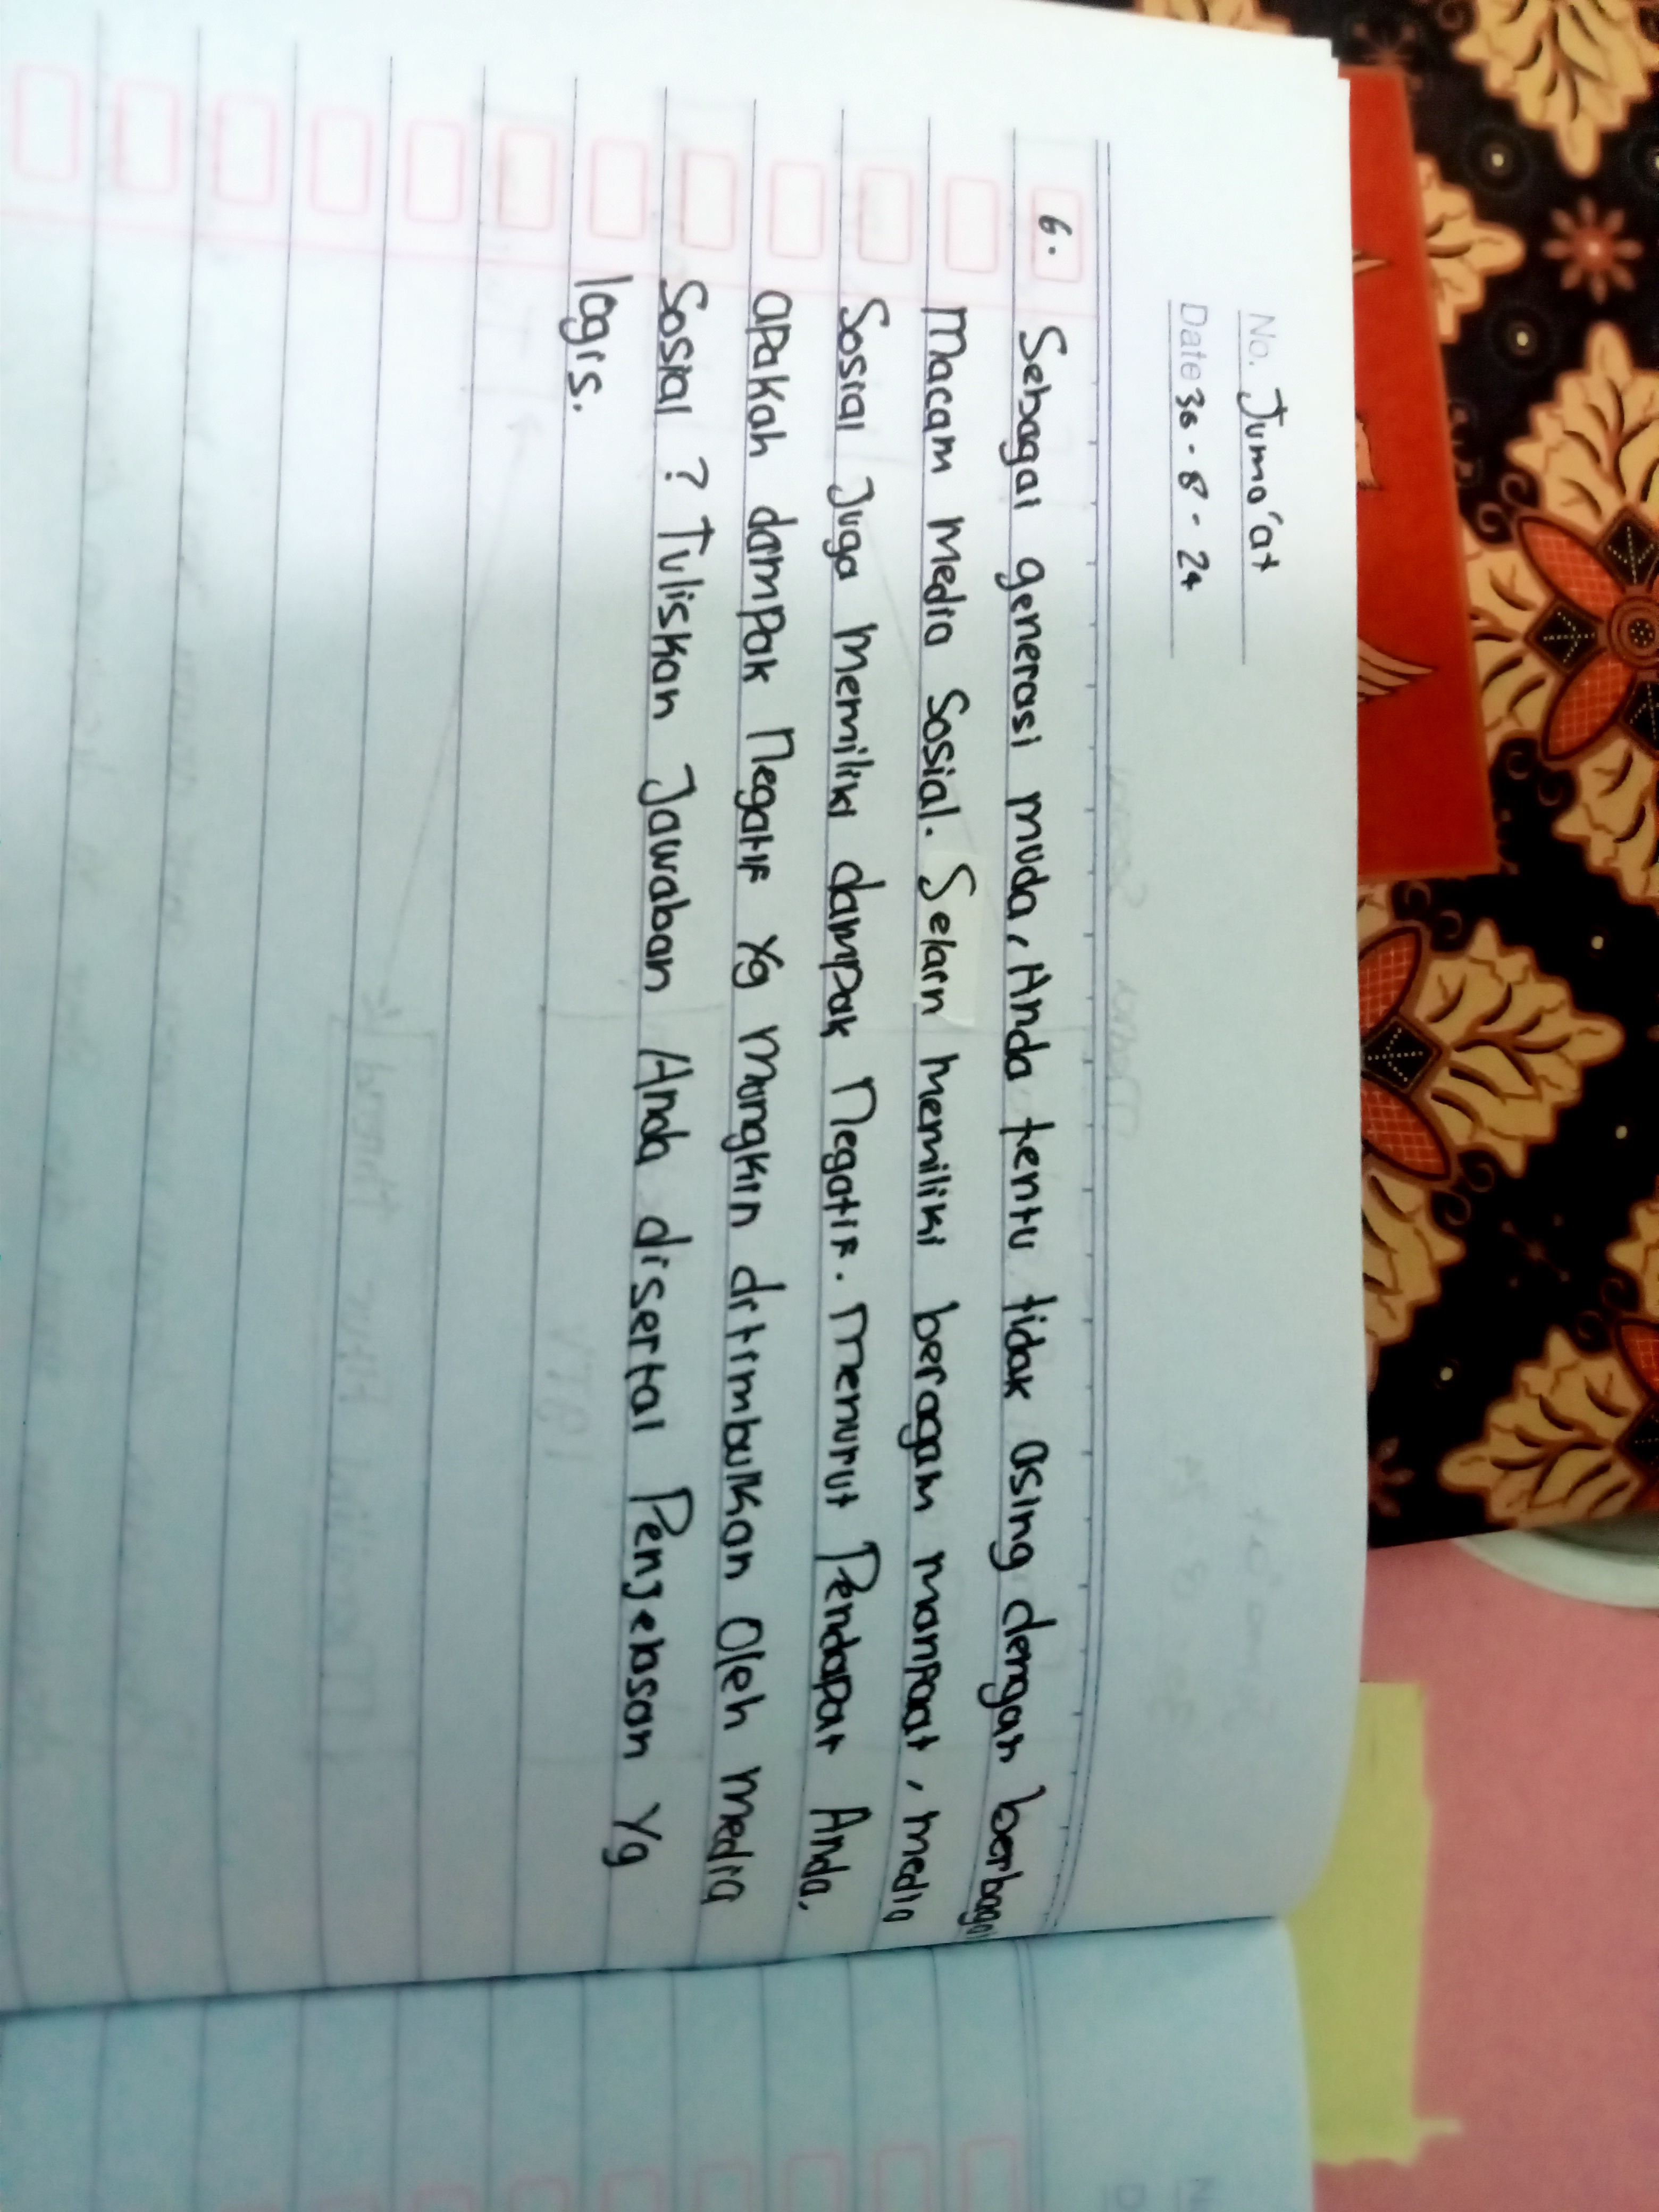 No. Juma'at
Date 30 - 8 - 24
6. Sebagai generasi muda, Anda tentu tidak asing dengan berbagai
macam media sosial. Selain memiliki beragam manfaat, media
Sosial Juga memiliki dampak negatif. menurut Pendapat Anda,
apakah dampak negatif yg mungkin ditimbulkan oleh media
Sosial ? Tuliskan Jawaban Anda disertai Penjelasan yg
logis.